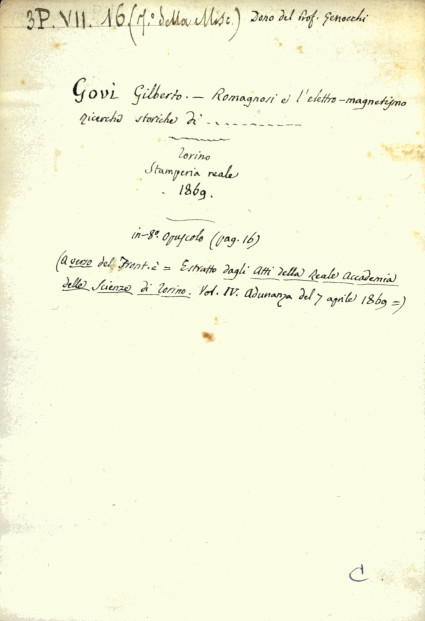 3P. VII. 16. (7.º della Misc.) Dono del Prof. Genocchi
Govi Gilberto. — Romagnosi e l'elettro-magnetismo
ricerche storiche di ............
Torino
Stamperia reale
1869.
in-8º. Opuscolo (pag. 16)
(A verso del Front. è = Estratto dagli Atti della Reale Accademia
delle Scienze di Torino. Vol. IV. Adunanza del 7 aprile 1869 =)
C.